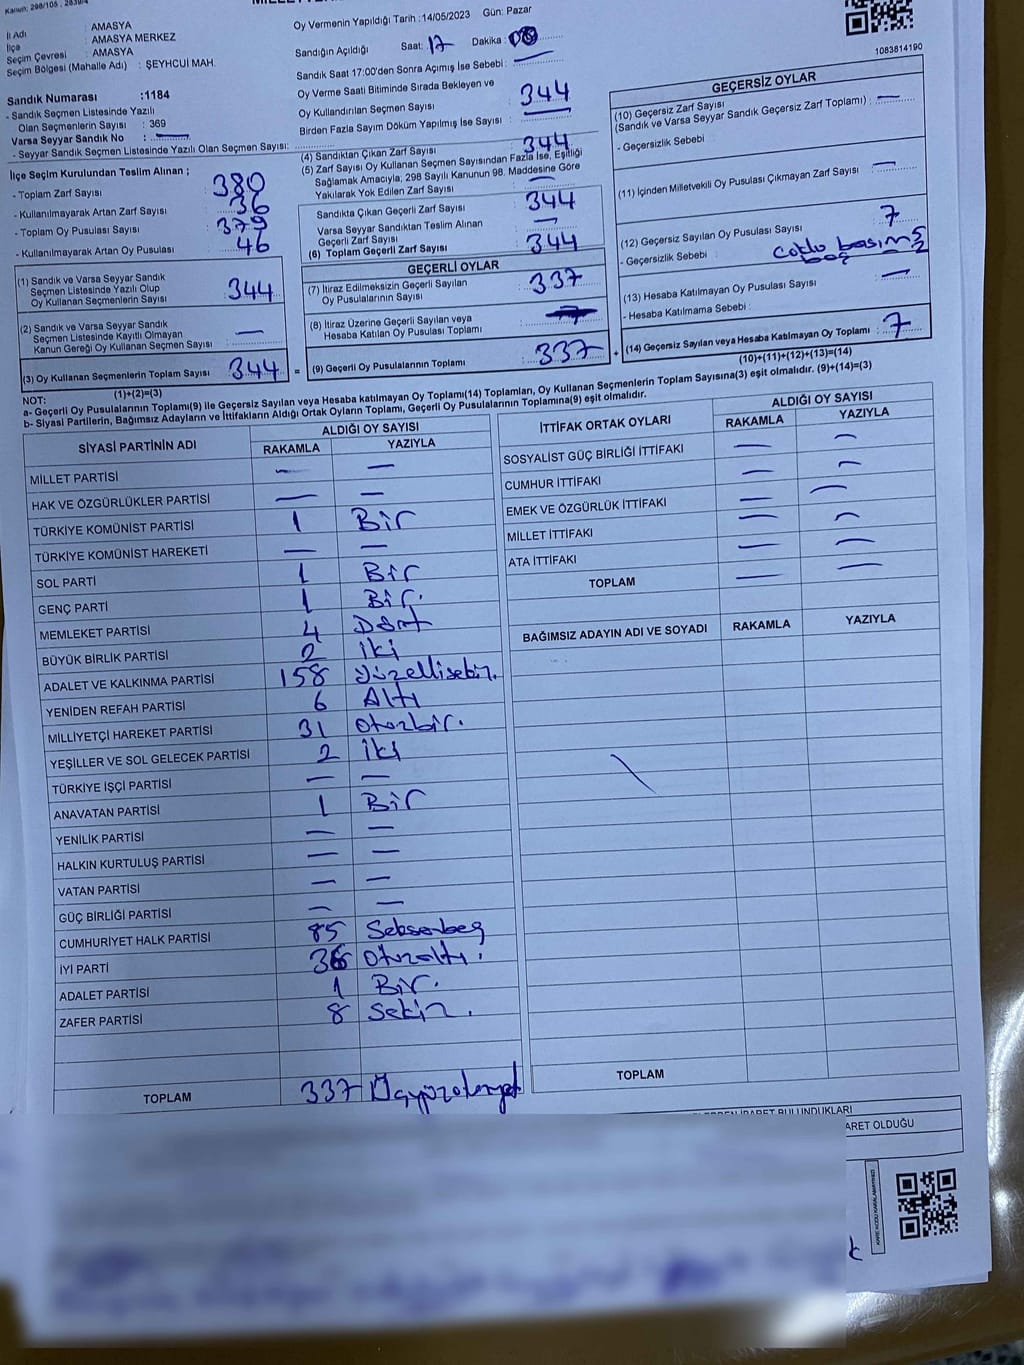 Kanun: 298/105 , 2839/4
Oy Vermenin Yapıldığı Tarih : 14/05/2023 Gün: Pazar
İl Adı : AMASYA
İlçe : AMASYA MERKEZ
Seçim Çevresi : AMASYA
Seçim Bölgesi (Mahalle Adı) : ŞEYHCUİ MAH.
Sandığın Açıldığı Saat: 17 Dakika
Sandık Saat 17:00'den Sonra Açımış İse Sebebi : —
Sandık Numarası :1184
- Sandık Seçmen Listesinde Yazılı
Olan Seçmenlerin Sayısı : 369
Varsa Seyyar Sandık No : —
- Seyyar Sandık Seçmen Listesinde Yazılı Olan Seçmen Sayısı:
Oy Verme Saati Bitiminde Sırada Bekleyen ve
Oy Kullandırılan Seçmen Sayısı : 344
Birden Fazla Sayım Döküm Yapılmış İse Sayısı : —
İlçe Seçim Kurulundan Teslim Alınan ;
- Toplam Zarf Sayısı : 380
- Kullanılmayarak Artan Zarf Sayısı : 36
- Toplam Oy Pusulası Sayısı : 379
- Kullanılmayarak Artan Oy Pusulası : 46
(1) Sandık ve Varsa Seyyar Sandık
Seçmen Listesinde Yazılı Olup
Oy Kullanan Seçmenlerin Sayısı : 344
(2) Sandık ve Varsa Seyyar Sandık
Seçmen Listesinde Kayıtlı Olmayan
Kanun Gereği Oy Kullanan Seçmen Sayısı : —
(3) Oy Kullanan Seçmenlerin Toplam Sayısı : 344
(1)+(2)=(3)
(4) Sandıktan Çıkan Zarf Sayısı : 344
(5) Zarf Sayısı Oy Kullanan Seçmen Sayısından Fazla İse, Eşitliği
Sağlamak Amacıyla, 298 Sayılı Kanunun 98. Maddesine Göre
Yakılarak Yok Edilen Zarf Sayısı : —
Sandıkta Çıkan Geçerli Zarf Sayısı : 344
Varsa Seyyar Sandıktan Teslim Alınan
Geçerli Zarf Sayısı : —
(6) Toplam Geçerli Zarf Sayısı : 344
GEÇERLİ OYLAR
(7) İtiraz Edilmeksizin Geçerli Sayılan
Oy Pusulalarının Sayısı : 337
(8) İtiraz Üzerine Geçerli Sayılan veya
Hesaba Katılan Oy Pusulası Toplamı :
= (9) Geçerli Oy Pusulalarının Toplamı : 337
1083814190
GEÇERSİZ OYLAR
(10) Geçersiz Zarf Sayısı
(Sandık ve Varsa Seyyar Sandık Geçersiz Zarf Toplamı) : —
- Geçersizlik Sebebi
(11) İçinden Milletvekili Oy Pusulası Çıkmayan Zarf Sayısı : —
(12) Geçersiz Sayılan Oy Pusulası Sayısı : 7
- Geçersizlik Sebebi :
(13) Hesaba Katılmayan Oy Pusulası Sayısı : —
- Hesaba Katılmama Sebebi :
+ (14) Geçersiz Sayılan veya Hesaba Katılmayan Oy Toplamı : 7
(10)+(11)+(12)+(13)=(14)
NOT:
a- Geçerli Oy Pusulalarının Toplamı(9) ile Geçersiz Sayılan veya Hesaba katılmayan Oy Toplamı(14) Toplamları, Oy Kullanan Seçmenlerin Toplam Sayısına(3) eşit olmalıdır. (9)+(14)=(3)
b- Siyasi Partilerin, Bağımsız Adayların ve İttifakların Aldığı Ortak Oyların Toplamı, Geçerli Oy Pusulalarının Toplamına(9) eşit olmalıdır.
SİYASİ PARTİNİN ADI ALDIĞI OY SAYISI
RAKAMLA YAZIYLA
MİLLET PARTİSİ — —
HAK VE ÖZGÜRLÜKLER PARTİSİ — —
TÜRKİYE KOMÜNİST PARTİSİ 1 Bir
TÜRKİYE KOMÜNİST HAREKETİ — —
SOL PARTİ 1 Bir
GENÇ PARTİ 1 Bir.
MEMLEKET PARTİSİ 4 Dört
BÜYÜK BİRLİK PARTİSİ 2 iki
ADALET VE KALKINMA PARTİSİ 158 Yüzellisekiz.
YENİDEN REFAH PARTİSİ 6 Altı
MİLLİYETÇİ HAREKET PARTİSİ 31 Otuzbir.
YEŞİLLER VE SOL GELECEK PARTİSİ 2 iki
TÜRKİYE İŞÇİ PARTİSİ — —
ANAVATAN PARTİSİ 1 Bir
YENİLİK PARTİSİ — —
HALKIN KURTULUŞ PARTİSİ — —
VATAN PARTİSİ — —
GÜÇ BİRLİĞİ PARTİSİ — —
CUMHURİYET HALK PARTİSİ 85 Seksenbeş
İYİ PARTİ 36 Otuzaltı.
ADALET PARTİSİ 1 Bir.
ZAFER PARTİSİ 8 Sekiz.
TOPLAM 337 Üçyüzotuzyedi
İTTİFAK ORTAK OYLARI ALDIĞI OY SAYISI
RAKAMLA YAZIYLA
SOSYALİST GÜÇ BİRLİĞİ İTTİFAKI — —
CUMHUR İTTİFAKI — —
EMEK VE ÖZGÜRLÜK İTTİFAKI — —
MİLLET İTTİFAKI — —
ATA İTTİFAKI — —
TOPLAM — —
BAĞIMSIZ ADAYIN ADI VE SOYADI RAKAMLA YAZIYLA
TOPLAM
İBARET BULUNDUKLARI
ARET OLDUĞU